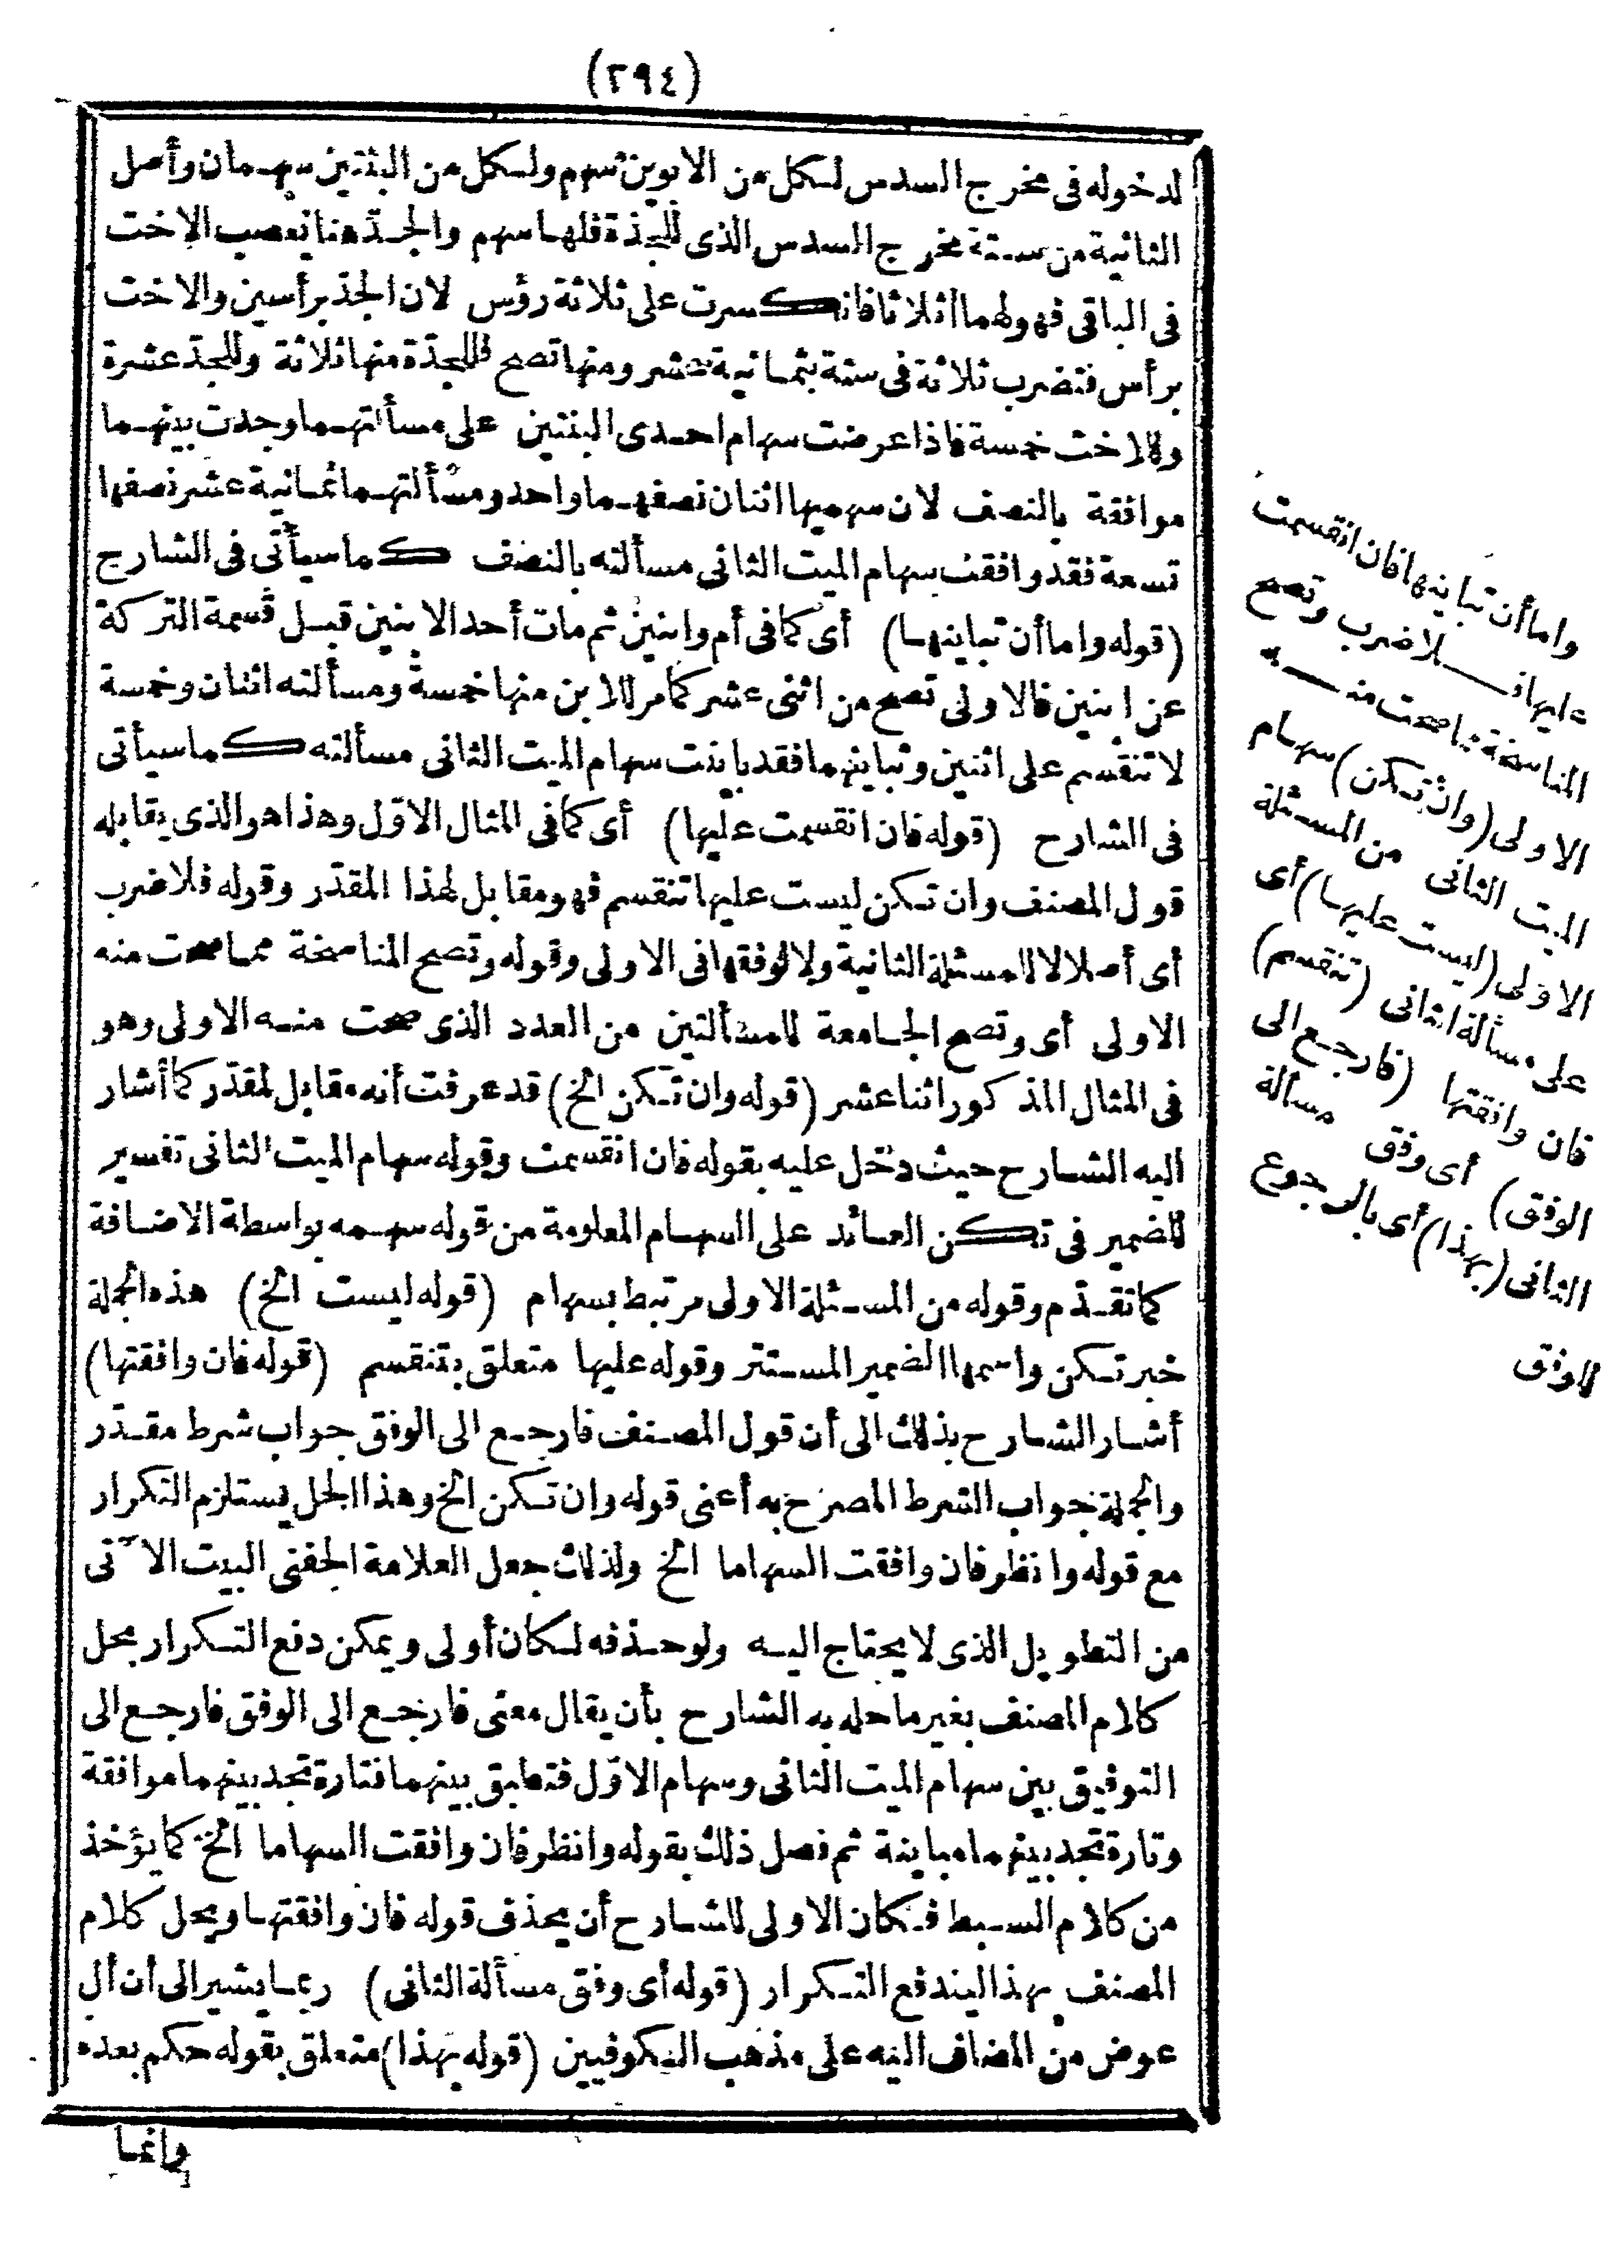 (٢٩٤)
لدخوله فى مخرج السدس لكل من الابوين سهم ولكل من البنتين سهمان وأصل
الثانية من ستة مخرج السدس الذى للجدة فلها سهم والجد هنا يعصب الاخت
فى الباقى فهو لهما أثلاثا فانكسرت على ثلاثة رؤس لان الجد برأسين والاخت
برأس فتضرب ثلاثة فى ستة بثمانية عشر ومنها تصح فللجدة منها ثلاثة وللجد عشرة
وللاخت خمسة فاذا عرضت سهام احدى البنتين على مسألتهما وجدت بينهما
موافقة بالنصف لان سهميها اثنان نصفهما واحد ومسألتهما ثمانية عشر نصفها
تسعة فقد وافقت سهام الميت الثانى مسألته بالنصف كما سيأتى فى الشارح
(قوله واما أن تباينها) أى كما فى أم وابنين ثم مات أحد الابنين قبل قسمة التركة
عن ابنين فالاولى تصح من اثنى عشر كما مر للابن منها خمسة ومسألته اثنان وخمسة
لا تنقسم على اثنين وتباينهما فقد باينت سهام الميت الثانى مسألته كما سيأتى
فى الشارح (قوله فان انقسمت عليها) أى كما فى المثال الاول وهذا هو الذى يقابله
قول المصنف وان تكن ليست عليها تنقسم فهو مقابل لهذا المقدر وقوله فلا ضرب
أى أصلا لا للمسئلة الثانية ولا لوفقها فى الاولى وقوله وتصح المناسخة مما صحت منه
الاولى أى وتصح الجامعة للمسألتين من العدد الذى صحت منه الاولى وهو
فى المثال المذكور اثنا عشر (قوله وان تكن الخ) قد عرفت أنه مقابل لمقدر كما أشار
اليه الشارح حيث دخل عليه بقوله فان انقسمت وقوله سهام الميت الثانى تفسير
للضمير فى تكن العائد على السهام المعلومة من قوله سهمه بواسطة الاضافة
كما تقدم وقوله من المسئلة الاولى مرتبط بسهام (قوله ليست الخ) هذه الجملة
خبر تكن واسمها الضمير المستتر وقوله عليها متعلق بتنقسم (قوله فان وافقتها)
أشار الشارح بذلك الى أن قول المصنف فارجع الى الوفق جواب شرط مقدر
والجملة جواب الشرط المصرح به أعنى قوله وان تكن الخ وهذا الحل يستلزم التكرار
مع قوله وانظر فان وافقت السهاما الخ ولذلك جعل العلامة الحفنى البيت الآتى
من التطويل الذى لا يحتاج اليه ولو حذفه لكان أولى ويمكن دفع التكرار بحل
كلام المصنف بغير ما حله به الشارح بأن يقال معنى فارجع الى الوفق فارجع الى
التوفيق بين سهام الميت الثانى وسهام الاول فتطبق بينهما فتارة تجد بينهما موافقة
وتارة تجد بينهما مباينة ثم فصل ذلك بقوله وانظر فان وافقت السهاما الخ كما يؤخذ
من كلام السبط فكان الاولى للشارح أن يحذف قوله فان وافقتها ويحل كلام
المصنف بهذا ليندفع التكرار (قوله أى وفق مسألة الثانى) ربما يشير الى أن أل
عوض من المضاف اليه على مذهب الكوفيين (قوله بهذا) متعلق بقوله حكم بعده
وانما
واما أن تباينها فان انقسمت
عليها فلا ضرب وتصح
المناسخة مما صحت منه
الاولى (وان تكن) سهام
الميت الثانى من المسئلة
الاولى (ليست عليها) أى
على مسألة الثانى (تنقسم)
فان وافقتها (فارجع الى
الوفق) أى وفق مسألة
الثانى (بهذا) أى بالرجوع
للوفق